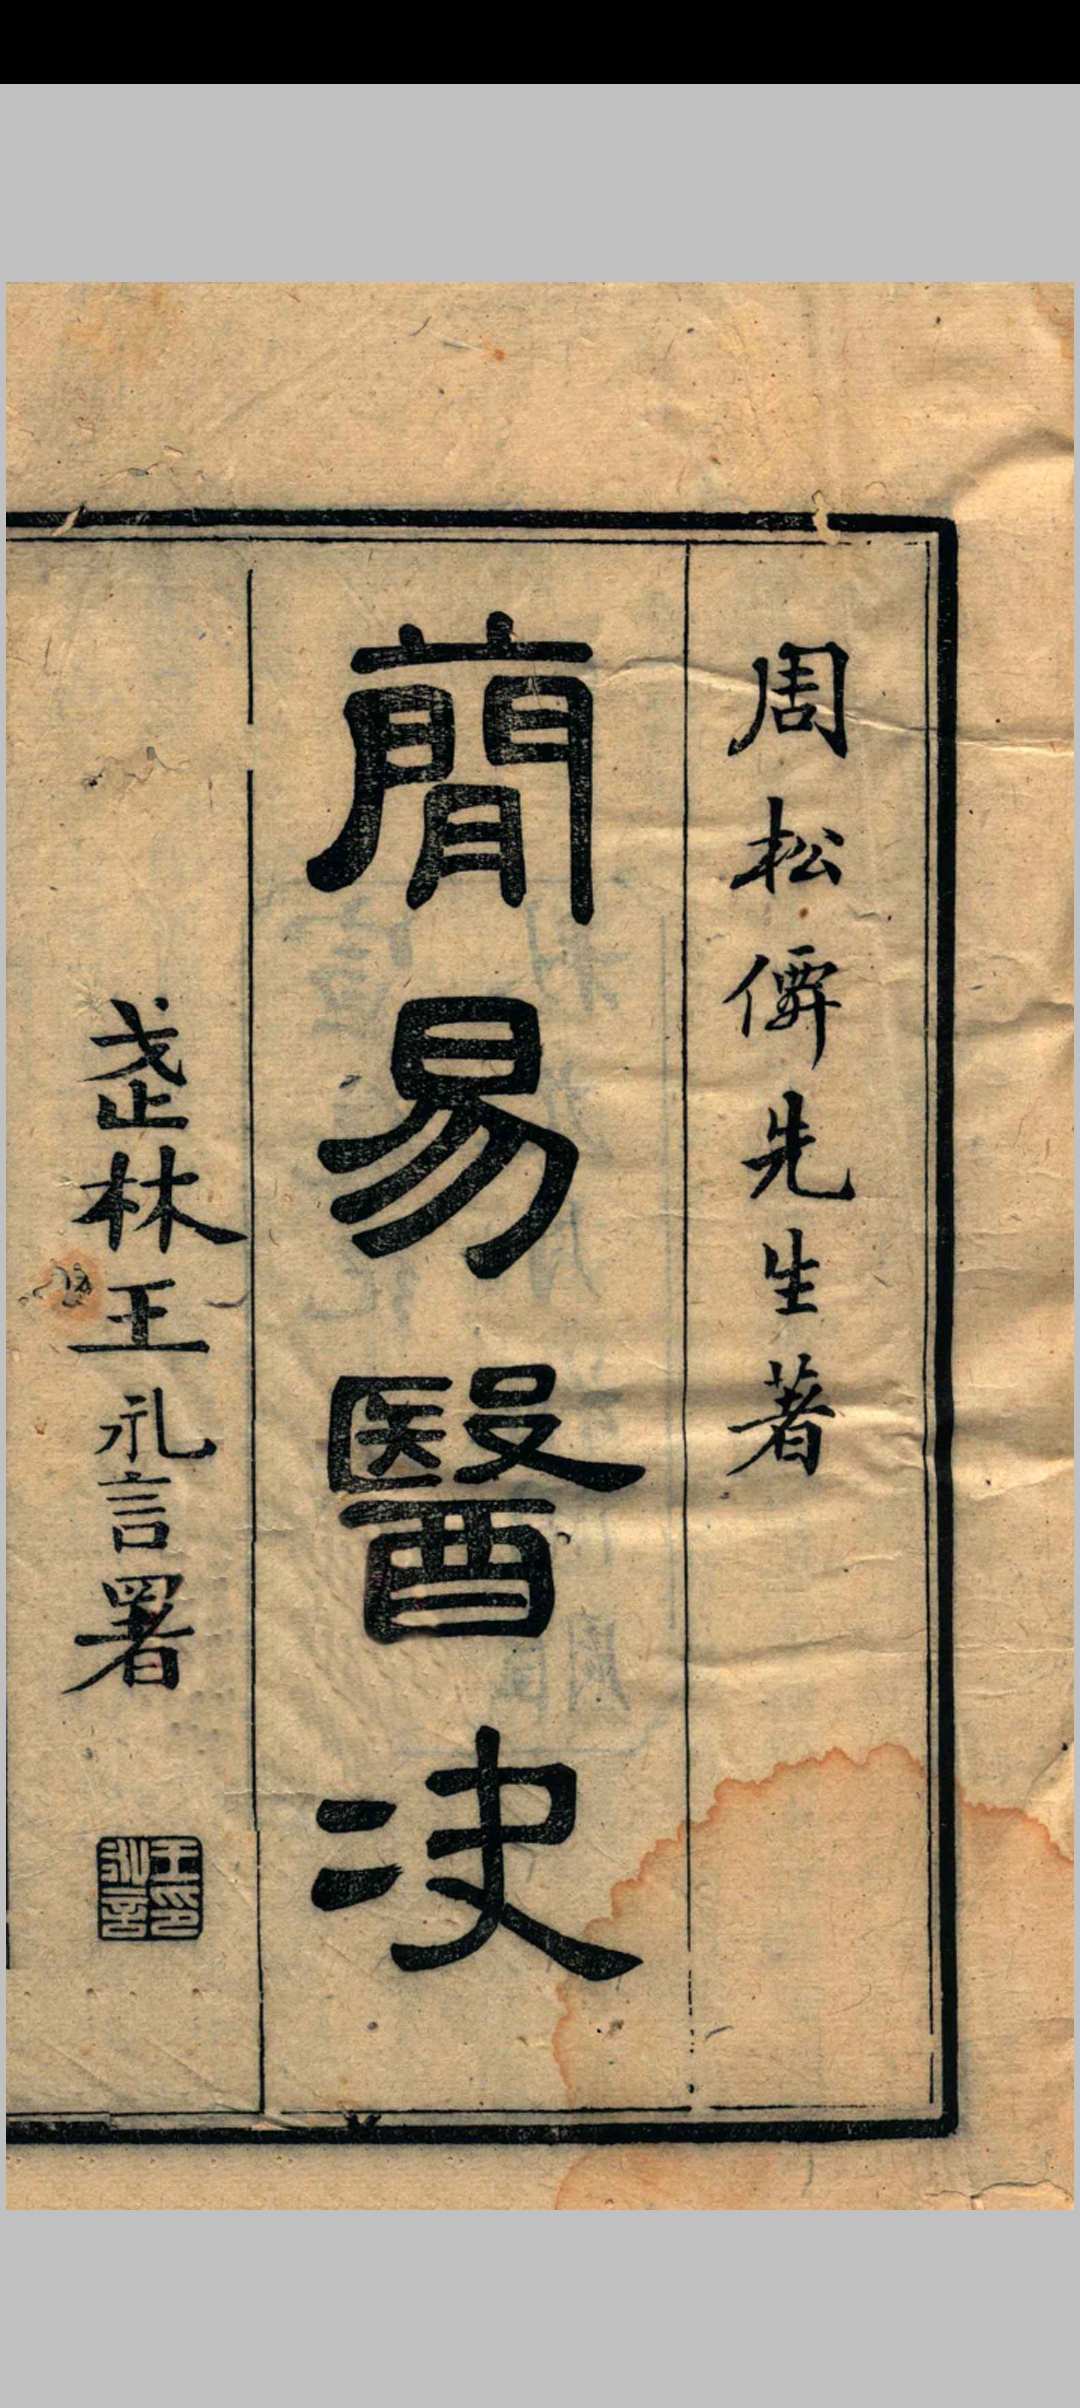 周松僊先生著
簡易醫决
武林王礼言署
王印礼言